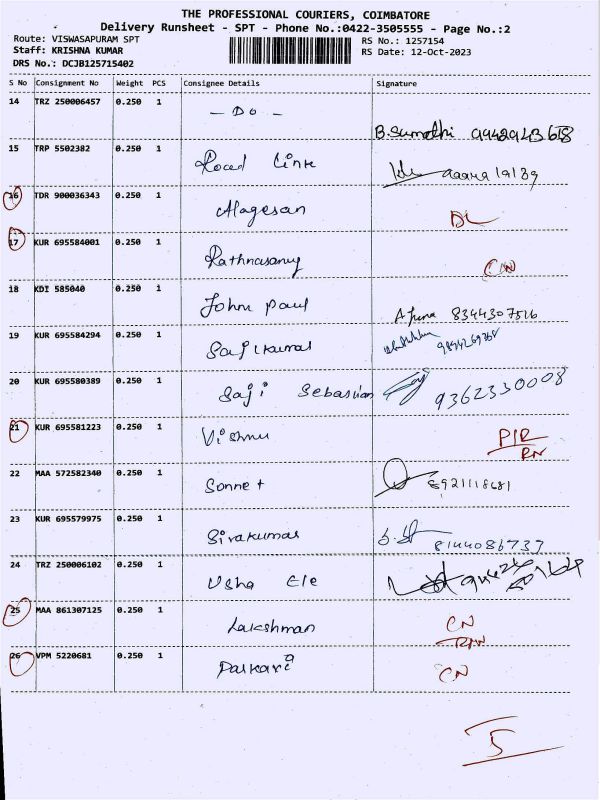 THE PROFESSIONAL COURIERS, COIMBATORE
Delivery Runsheet - SPT - Phone No.:0422-3505555 - Page No.:2
Route: VISWASAPURAM SPT RS No.: 1257154
Staff: KRISHNA KUMAR RS Date: 12-Oct-2023
DRS No.: DCJB125715402
S No Consignment No Weight PCS Consignee Details Signature
14 TRZ 250006457 0.250 1 - Do -
B. Sumathi
15 TRP 5502382 0.250 1 Road Link
16 TDR 900036343 0.250 1 Alagesan DL
17 KUR 695584001 0.250 1 Rathnasamy CN
18 KDI 585040 0.250 1 John Paul 8344307516
19 KUR 695584294 0.250 1 Sajikumar
20 KUR 695580389 0.250 1 Saji Sebastian 9362330008
21 KUR 695581223 0.250 1 Vishnu PIR
RN
22 MAA 572582340 0.250 1 Sonnet 8921118681
23 KUR 695579975 0.250 1 Sivakumar 8144086737
24 TRZ 250006102 0.250 1 Usha Ele
25 MAA 861307125 0.250 1 Lakshman CN
26 VPM 5220681 0.250 1 CN
5